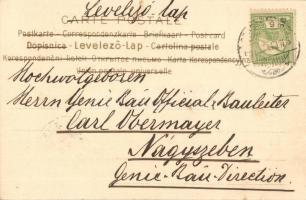 Levelező-lap
CARTE POSTALE
Postkarte - Correspondenzkarte - Briefkaart - Post card
Dopisnice - Levelező-Lap - Cartolina postale
Union postale universelle
Hochwolgeboren
Herrn Genie Bau Official: Bauleiter
Carl Obermayer
Nagyszeben
Genie-Bau-Direction.